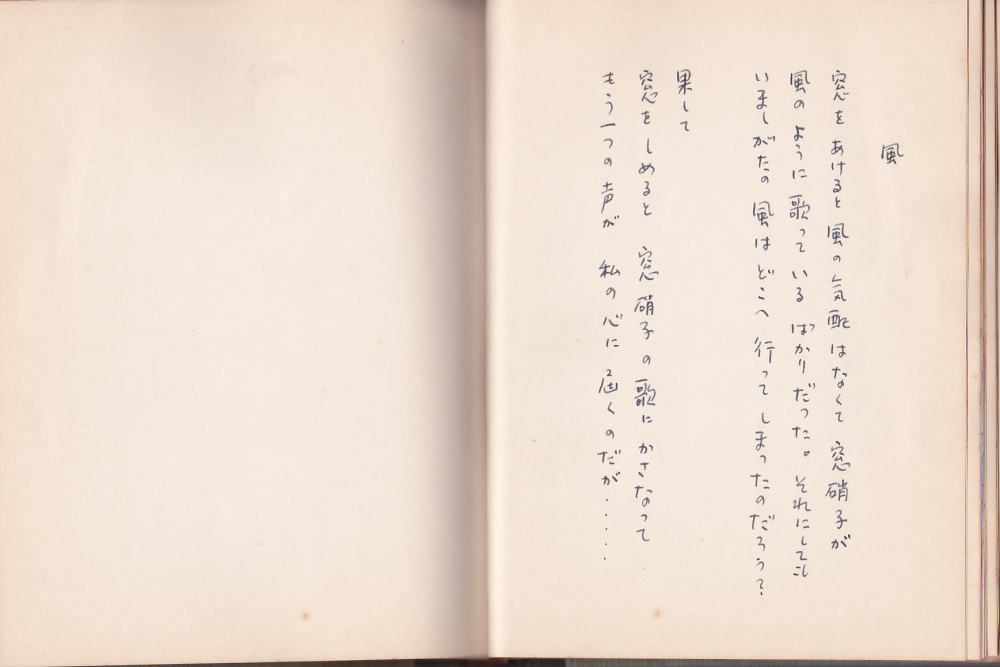 風
窓をあけると風の気配はなくて 窓硝子が
風のように歌っている ばかりだった。それにしても
いましがたの風はどこへ行ってしまったのだろう?
果して
窓をしめると 窓硝子の歌にかさなって
もう一つの声が 私の心に届くのだが......